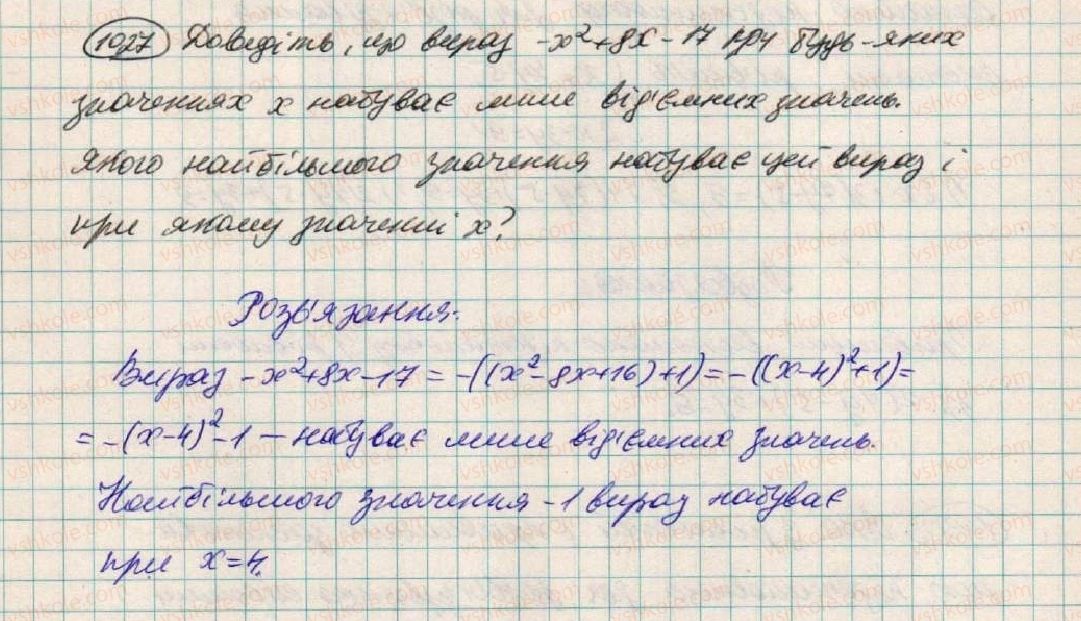 1027 Доведіть, що вираз -x²+8x-17 при будь-яких
значеннях x набуває лише від'ємних значень.
Якого найбільшого значення набуває цей вираз і
при якому значенні x?
Розв'язання.
Вираз -x²+8x-17 = -((x²-8x+16)+1) = -((x-4)²+1) =
= -(x-4)²-1 — набуває лише від'ємних значень.
Найбільшого значення -1 вираз набуває
при x=4.